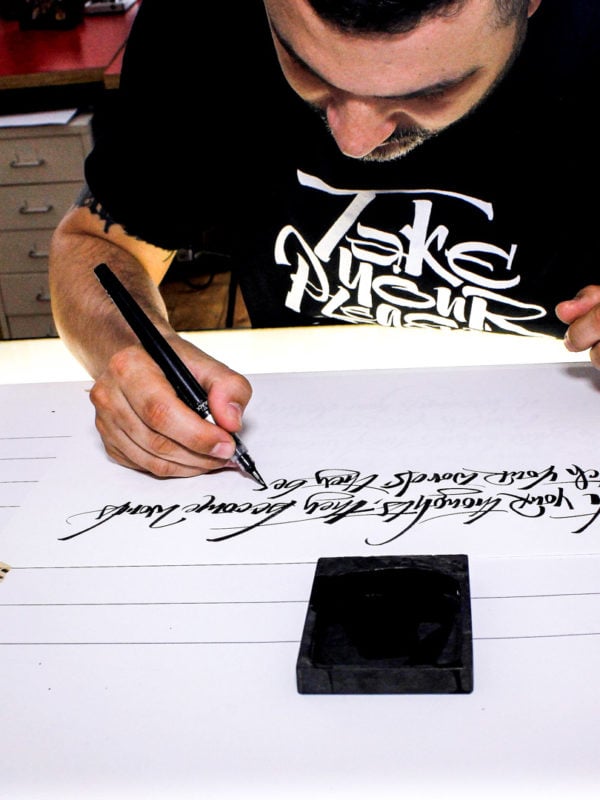 Take
your
your thoughts, they become words
your words they be